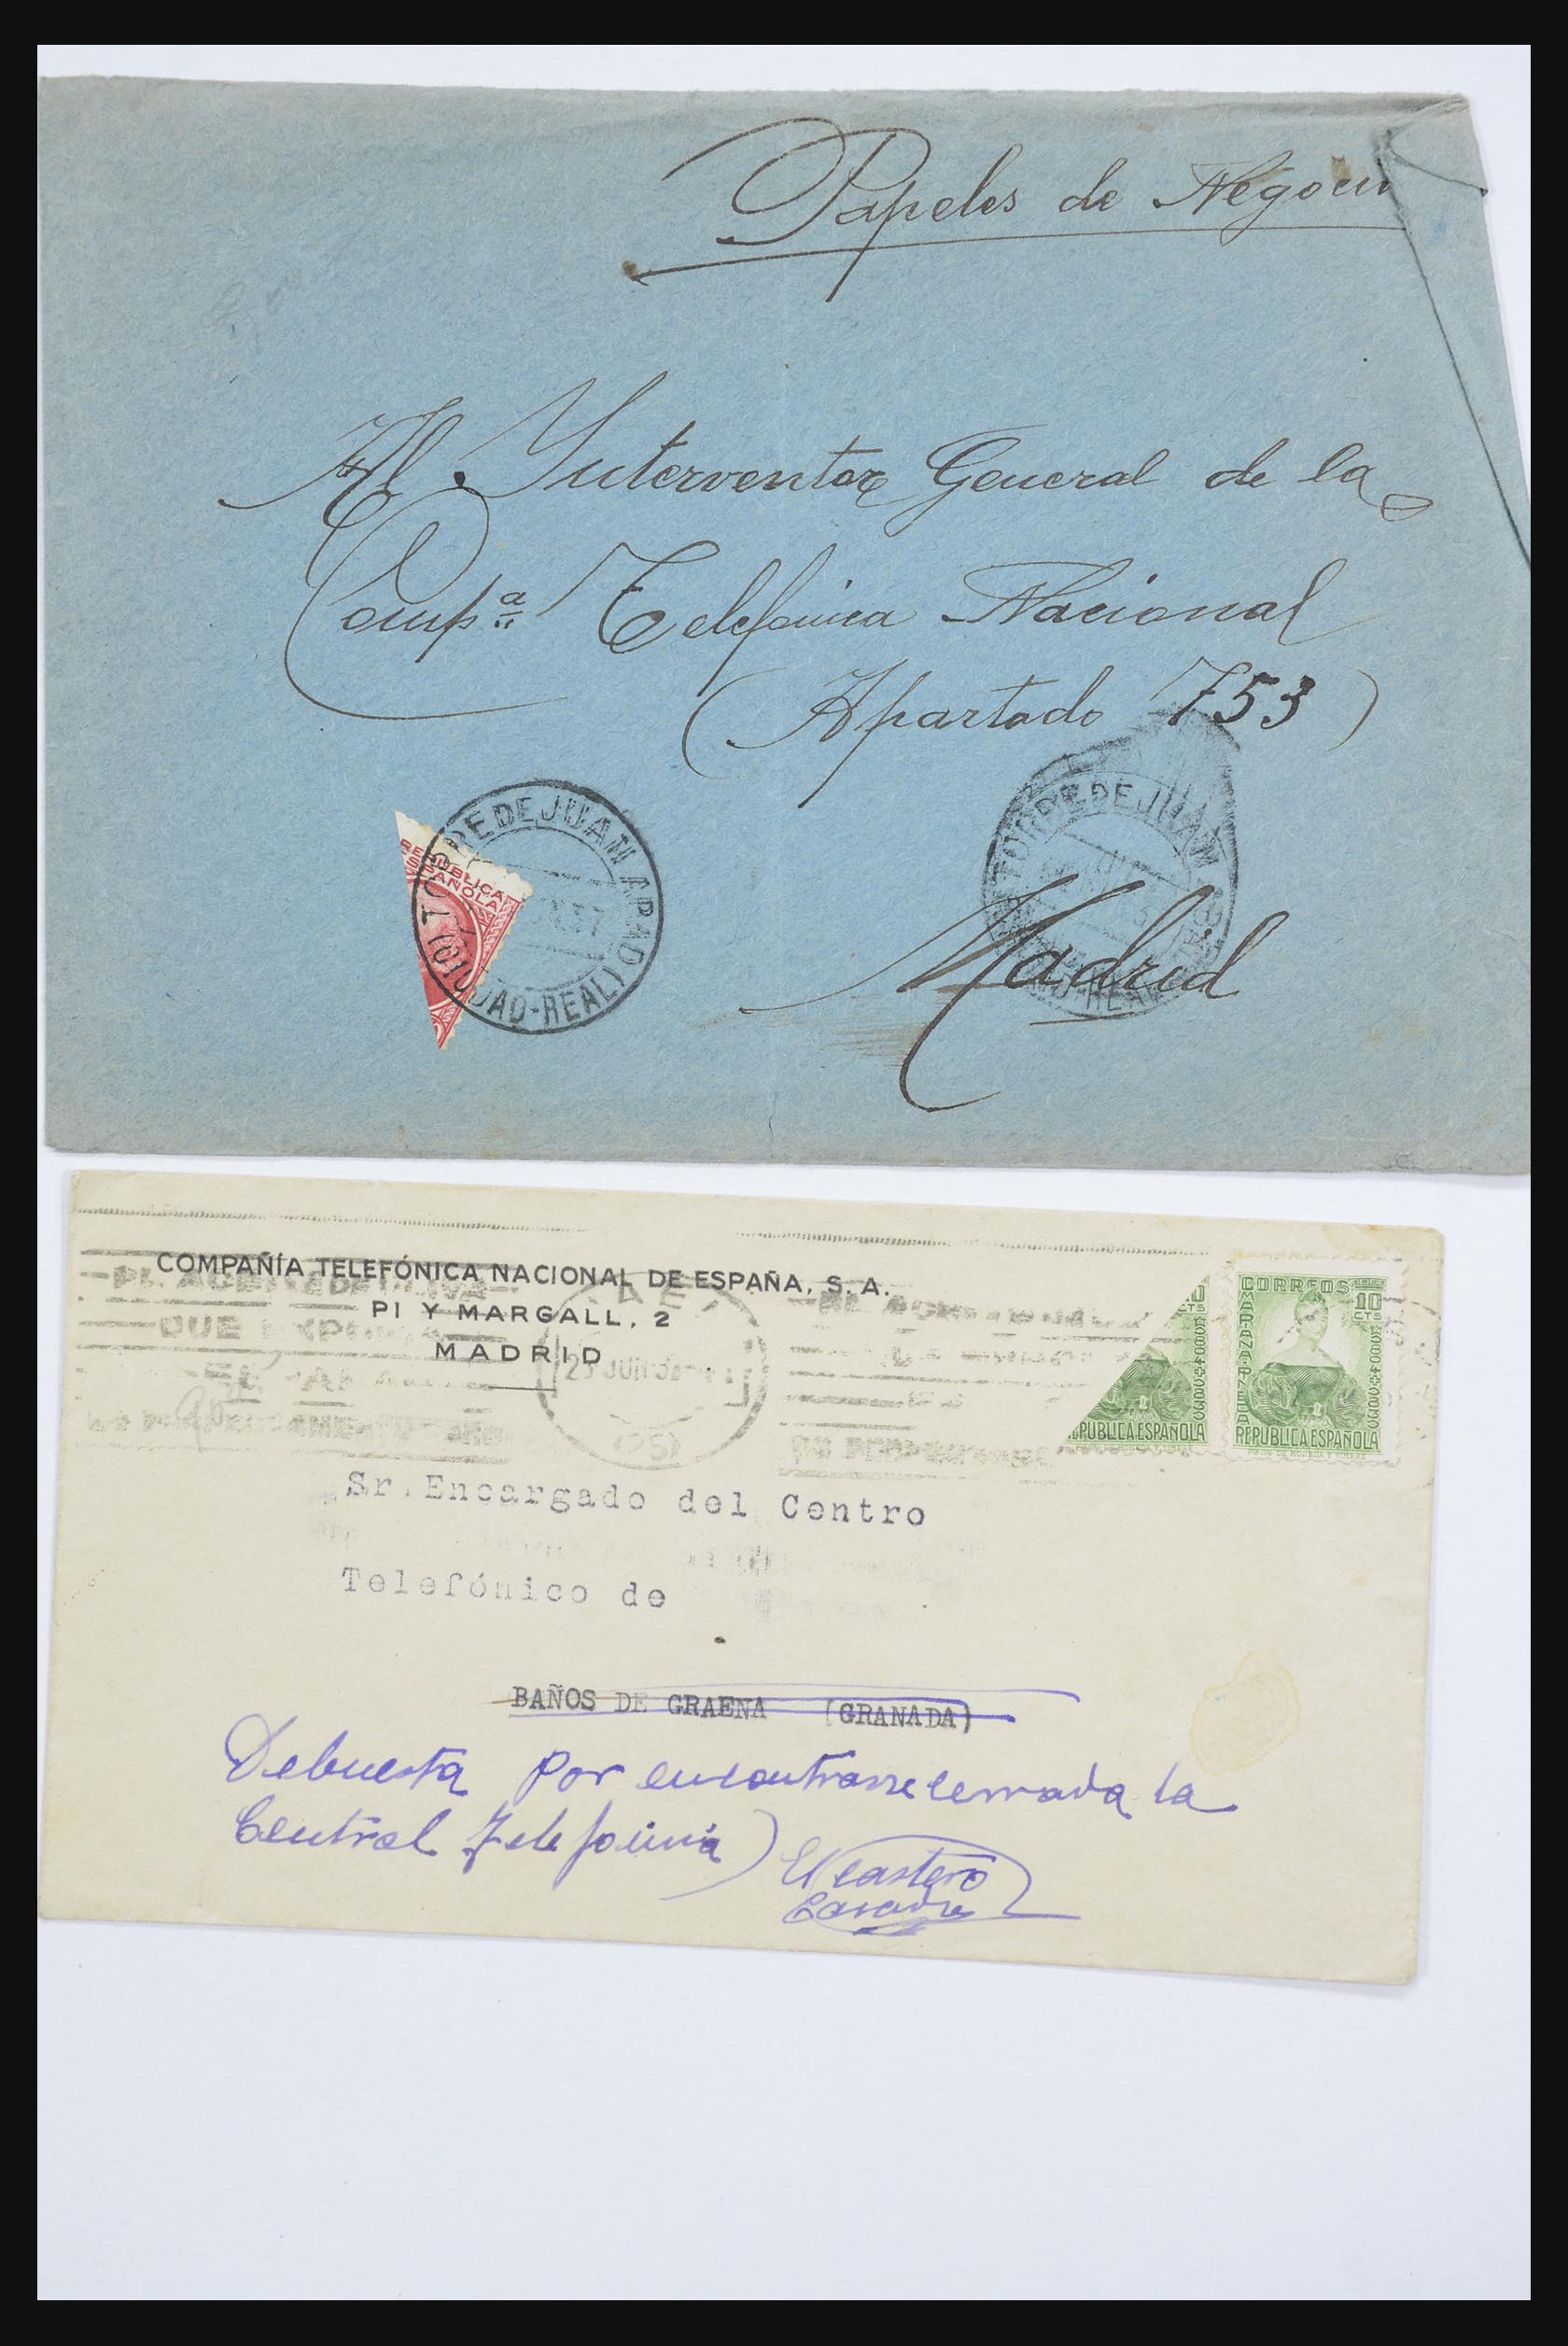 Papeles de Negocio
Al Interventor General de la
Comp.ª Telefonica Nacional
(Apartado 753)
REPUBLICA
ESPAÑOLA
TORREDEJUAN ABAD
(CIUDAD-REAL)
37
TORREDEJUAN
Madrid
COMPAÑÍA TELEFÓNICA NACIONAL DE ESPAÑA, S. A.
PI Y MARGALL, 2
MADRID
QUE
25 JUN
CORREOS 10 CTS
MARIANA PINEDA
REPUBLICA ESPAÑOLA
REPUBLICA ESPAÑOLA
Sr. Encargado del Centro
Telefónico de
BAÑOS DE GRAENA (GRANADA)
Debuesta por encontrarse cerrada la
Central Telefonica)
El Cartero